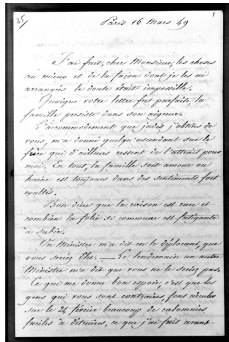 Paris 16 Mars 49
J'ai fait, cher Monsieur, les choses
au mieux et de la façon dont je les ai
arrangées le doute était impossible.
Quoique votre lettre fut parfaite, la
famille persiste dans son aigreur.
L'accommodement que jadis j'obtins de
vous, m'a donné quelqu'ascendant sur le
père qui d'ailleurs
vous. En tout, la famille soit amour ou
haine est toujours dans des sentiments fort
exaltés.
Bon dieu que la raison est rare et
combien la folie si commune est fatigante
à subir.
Un Ministre m'a dit en le déplorant, que
vous seriez élu. — Le lendemain un autre
Ministre m'a dit que vous ne le seriez pas.
Ce qui me donne bon espoir, c'est que les
gens qui vous sont contraires, font circuler
sur le 24 février beaucoup de calomnies
faciles à détruire, ce que j'ai fait avant